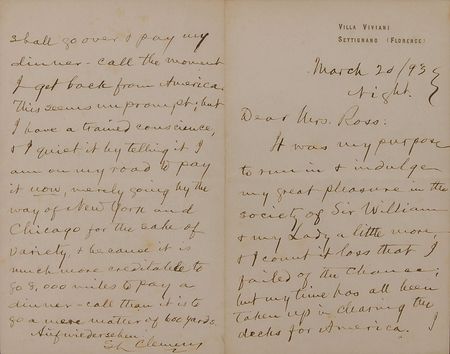 VILLA VIVIANI
SETTIGNANO (FLORENCE)
March 20/93
Night.
Dear Mrs. Ross:
It was my purpose
to run in & indulge
my great pleasure in the
society of Sir William
& my Lady a little more
& I count it loss that I
failed of the chance;
but my time has all been
taken up in clearing the
decks for America. I
shall go over & pay my
dinner-call the moment
I get back from America.
This seems unprompt; but
I have a trained conscience,
& I quiet it by telling it I
am on my road to pay
it now, merely going by the
way of New York and
Chicago for the sake of
variety, & because it is
much more creditable to
go 8,000 miles to pay a
dinner-call than it is to
go a mere matter of 600 yards.
Aufwiedersehen
SL Clemens